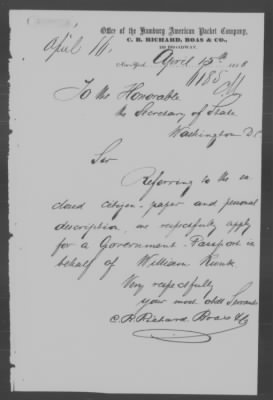 Office of the Hamburg American Packet Company,
C. B. RICHARD, BOAS & CO.,
BROADWAY.
April 16.
New York, April 15th
To the Honorable
the Secretary of State
Washington DC
Sir
Referring to the en
closed citizen-paper and personal
description, we respectfully apply
for a Government-Passport in
behalf of William Kunk.
Very respectfully
your most obdt Servants
C. B. Richard, Boas & Co